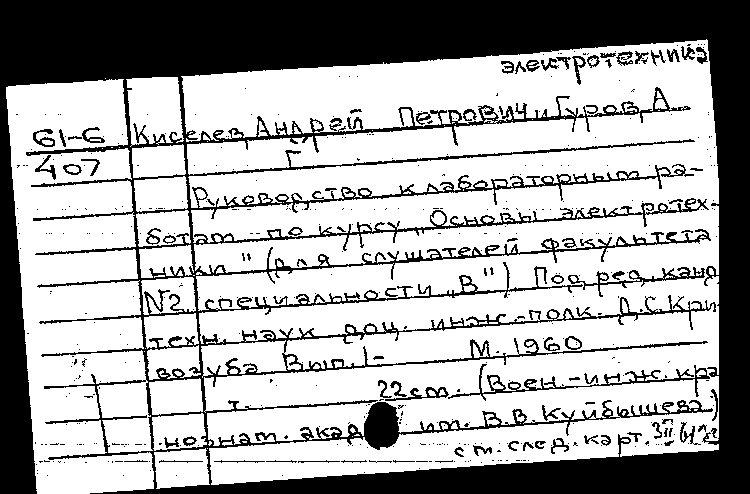 электротехника
61-6 Киселев, Андрей Петрович и Гуров, А.
407 Г.
Руководство к лабораторным ра-
ботам по курсу „Основы электротех-
ники" (для слушателей факультета
№2 специальности „В") Под ред. канд.
техн. наук доц. инж.-полк. Д.С. Кри-
возуба Вып. 1- М., 1960
т. 22 см. (Воен.-инж. кра
нознам. акад им. В.В. Куйбышева)
см. след. карт.